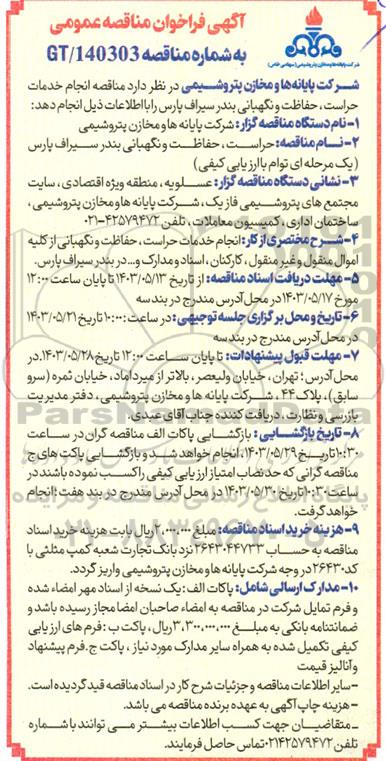 آگهی فراخوان مناقصه عمومی
به شماره مناقصه GT/140303
شرکت پایانه ها و مخازن پتروشیمی (سهامی خاص)
شرکت پایانه ها و مخازن پتروشیمی در نظر دارد مناقصه انجام خدمات
حراست، حفاظت و نگهبانی بندر سیراف پارس را با اطلاعات ذیل انجام دهد:
۱- نام دستگاه مناقصه گزار: شرکت پایانه ها و مخازن پتروشیمی
۲- نام مناقصه: حراست، حفاظت و نگهبانی بندر سیراف پارس
(یک مرحله ای توام با ارزیابی کیفی)
۳- نشانی دستگاه مناقصه گزار: عسلویه، منطقه ویژه اقتصادی، سایت
مجتمع های پتروشیمی فاز یک، شرکت پایانه ها و مخازن پتروشیمی،
ساختمان اداری، کمیسیون معاملات، تلفن ۴۲۵۷۹۴۷۲-۰۲۱
۴- شرح مختصری از کار: انجام خدمات حراست، حفاظت و نگهبانی از کلیه
اموال منقول و غیر منقول، کارکنان، اسناد و مدارک و... در بندر سیراف پارس.
۵- مهلت دریافت اسناد مناقصه: از تاریخ ۱۴۰۳/۰۵/۱۳ تا پایان ساعت ۱۲:۰۰
مورخ ۱۴۰۳/۰۵/۱۷ در محل آدرس مندرج در بند سه
۶- تاریخ و محل برگزاری جلسه توجیهی: در ساعت: ۱۰:۰۰ تاریخ ۱۴۰۳/۰۵/۲۱
در محل آدرس مندرج در بند سه
۷- مهلت قبول پیشنهادات: تا پایان ساعت ۱۲:۰۰ تاریخ ۱۴۰۳/۰۵/۲۸، در
محل آدرس؛ تهران، خیابان ولیعصر، بالاتر از میرداماد، خیابان ثمره (سرو
سابق)، پلاک ۴۴، شرکت پایانه ها و مخازن پتروشیمی، دفتر مدیریت
بازرسی و نظارت، دریافت کننده جناب آقای عبدی.
۸- تاریخ بازگشایی: بازگشایی پاکات الف مناقصه گران در ساعت
۱۰:۳۰ تاریخ ۱۴۰۳/۰۵/۲۹، انجام خواهد شد و بازگشایی پاکت های ج
مناقصه گرانی که حد نصاب امتیاز ارزیابی کیفی را کسب نموده باشند در
ساعت ۱۰:۳۰ تاریخ ۱۴۰۳/۰۵/۳۰ در محل آدرس مندرج در بند هفت؛ انجام
خواهد گرفت.
۹- هزینه خرید اسناد مناقصه: مبلغ ۲,۰۰۰,۰۰۰ ریال بابت هزینه خرید اسناد
مناقصه به حساب ۲۶۴۳۰۴۴۷۳۳ نزد بانک تجارت شعبه کمپ مثلثی با
کد ۲۶۴۳۰ در وجه شرکت پایانه ها و مخازن پتروشیمی واریز گردد.
۱۰- مدارک ارسالی شامل: پاکات الف: یک نسخه از اسناد مهر امضاء شده
و فرم تمایل شرکت در مناقصه به امضاء صاحبان امضا مجاز رسیده باشد و
ضمانتنامه بانکی به مبلغ ۳,۳۰۰,۰۰۰,۰۰۰ ریال، پاکت ب: فرم های ارزیابی
کیفی تکمیل شده به همراه سایر مدارک مورد نیاز، پاکت ج: فرم پیشنهاد
و آنالیز قیمت
- سایر اطلاعات مناقصه و جزئیات شرح کار در اسناد مناقصه قید گردیده است.
- هزینه چاپ آگهی به عهده برنده مناقصه می باشد.
- متقاضیان جهت کسب اطلاعات بیشتر می توانند با شماره
تلفن ۰۲۱۴۲۵۷۹۴۷۲ تماس حاصل فرمایند.